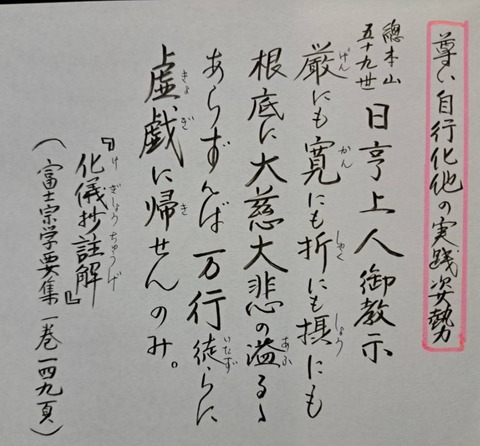 尊い自行化他の実践姿勢
總本山
五十九世
日亨上人御教示
厳にも寛にも折にも摂にも
げん かん しゃく しょう
根底に大慈大悲の溢るゝ
あふ
あらずんば万行徒らに
いたず
虚戯に帰せんのみ。
きょ ぎ き
『化儀抄註解』
け ぎしょうちゅうげ
（富士宗学要集一巻一四九頁）